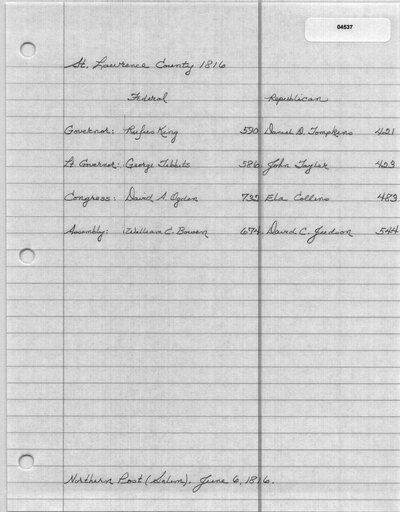 04537
St. Lawrence County 1816
Federal Republican
Governor: Rufus King 590 Daniel D. Tompkins 421
Lt. Governor: George Tibbits 586 John Tayler 423
Congress: David A. Ogden 735 Ela Collins 483
Assembly: William C. Bowen 674 David C. Judson 544
Northern Post (Salem). June 6, 1816.